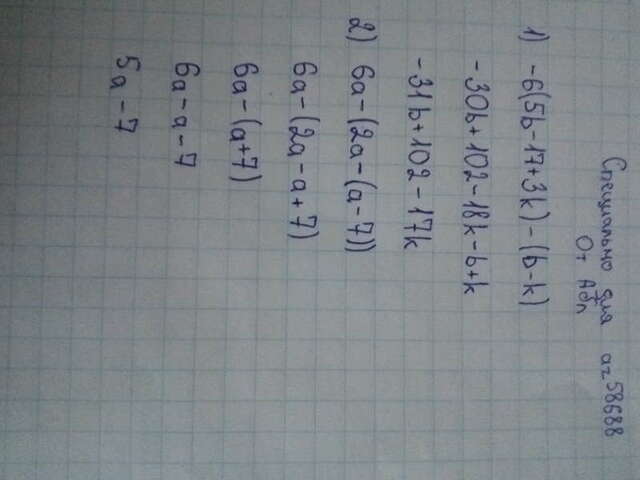 Специально для az58688
От Adn
1) -6(5b-17+3k)-(b-k)
-30b+102-18k-b+k
-31b+102-17k
2) 6a-(2a-(a-7))
6a-(2a-a+7)
6a-(a+7)
6a-a-7
5a-7